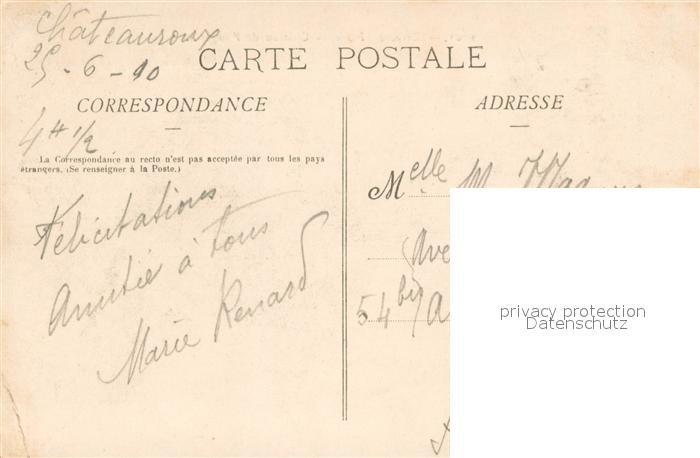 Châteauroux
25-6-10
CARTE POSTALE
CORRESPONDANCE
4H 1/2
La Correspondance au recto n'est pas acceptée par tous les pays
étrangers. (Se renseigner à la Poste.)
Félicitations
Amitié à tous
Marie Renard
ADRESSE
Melle M.
Ave
54 bis A
privacy protection
Datenschutz